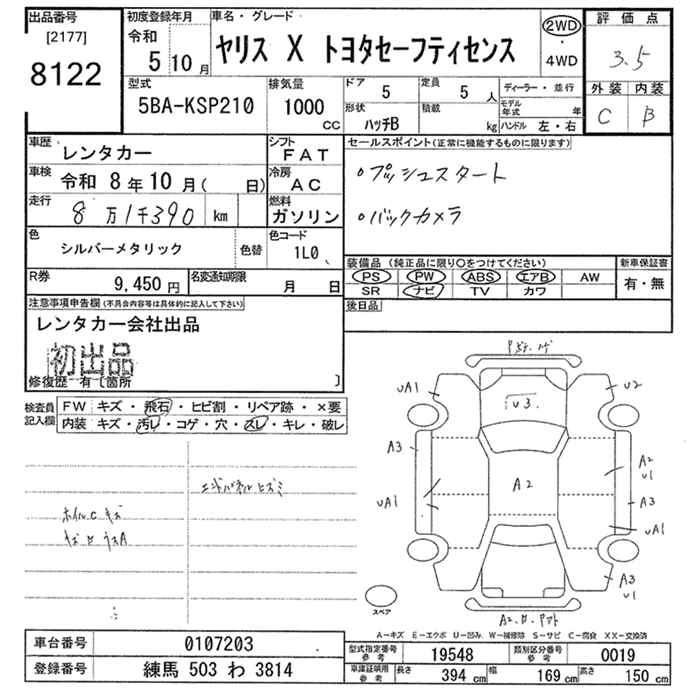 出品番号
[2177]
8122
初度登録年月
令和
5 10月
車名・グレード
ヤリス X トヨタセーフティセンス
2WD
・
4WD
評価点
3.5
外装 内装
C B
型式
5BA-KSP210
排気量
1000
CC
ドア 5
定員 5 人
形状 ハッチB
積載 kg
ディーラー・並行
モデル年式 年
ハンドル 左・右
車歴 レンタカー
シフト FAT
車検 令和 8年10月( 日)
冷房 AC
走行 8万1千390 km
燃料 ガソリン
色 シルバーメタリック 色替
色コード 1L0
R券 9,450円
名変通知期限 月 日
セールスポイント(正常に機能するものに限ります)
。プッシュスタート
。バックカメラ
装備品(純正品に限り〇をつけてください)
PS PW ABS エアB AW
SR ナビ TV カワ
新車保証書
有・無
後日品
注意事項申告欄(不具合内容等は具体的に記入して下さい)
レンタカー会社出品
初出品
修復歴 有〔箇所 〕
検査員記入欄
FW キズ・飛石・ヒビ割・リペア跡・×要
内装 キズ・汚レ・コゲ・穴・スレ・キレ・破レ
エンドパネルヒズミ
ホイルCキズ
UA1
U2
U3.
A3
UA1
A2
A2
U1
A3
UA1
A3
U1
スペア
A-キズ E-エクボ U-凹み W-補修跡 S-サビ C-腐食 XX-交換済
車台番号 0107203
登録番号 練馬 503 わ 3814
型式指定番号 参考 19548
類別区分番号 参考 0019
車庫証明用 参考 長さ 394 cm 幅 169 cm 高さ 150 cm